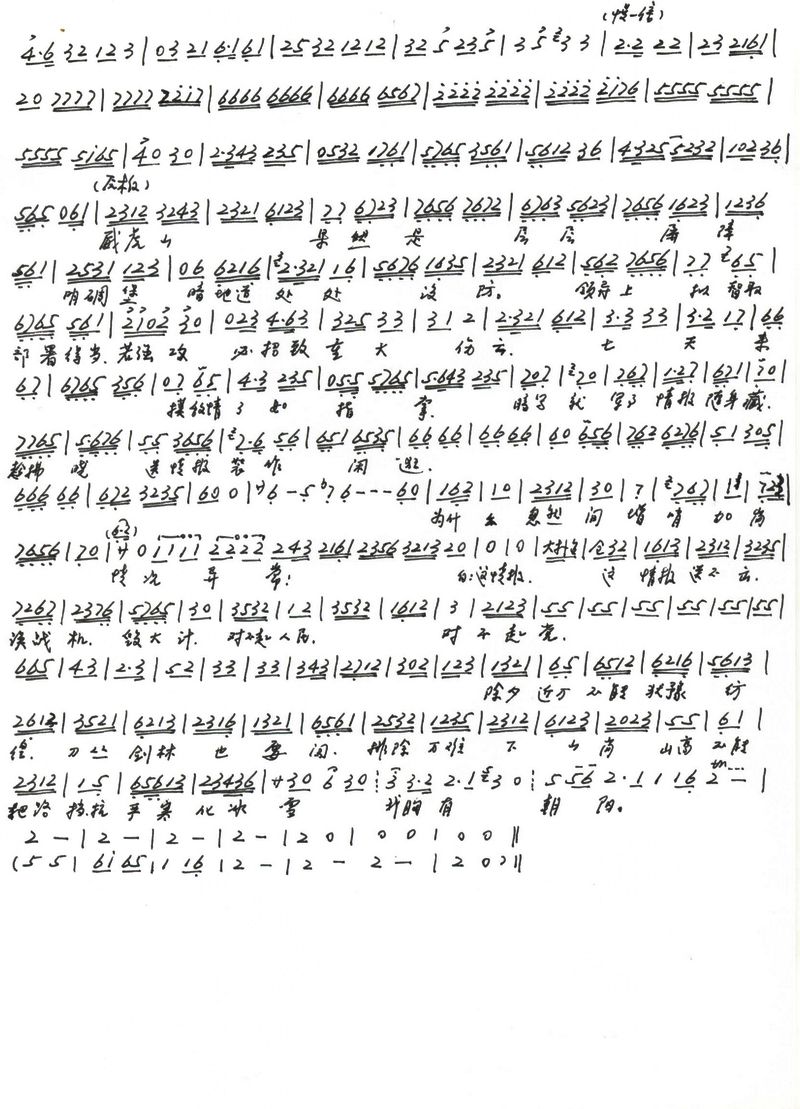 (慢一倍)
4·6 32 12 3 | 03 21 6·1 61 | 25 32 12 12 | 32 5 23 5 | 3 5 3 3 | 2·2 22 | 23 2161 |
20 7777 | 7777 7217 | 6666 6666 | 6666 6567 | 2222 2222 | 2222 2176 | 5555 5555 |
5555 5165 | 40 30 | 2·343 235 | 0532 1761 | 5765 3561 | 5612 36 | 4·325 5232 | 102 36 |
(原板)
565 061 | 2312 3243 | 2321 6123 | 77 6723 | 7656 7672 | 6763 5623 | 7656 1623 | 1236
威虎山 果然是 层层 屏障
561 | 2531 123 | 06 6216 | 2·321 16 | 5676 1635 | 2321 612 | 562 7656 | 77 65 |
明碉堡 暗地道 处处 设防。 领导上 拟智取
6765 561 | 2102 30 | 023 4·63 | 325 33 | 31 2 | 2·321 612 | 3·3 33 | 3·2 17 | 66
部署得当. 若强攻 必招致重大 伤亡. 七天来
67 | 6765 356 | 07 65 | 4·3 235 | 055 5765 | 5643 235 | 207 | 20 | 267 | 1·27 | 671 | 70 |
摸敌情了如 指掌. 暗写就 军事情报随身藏.
7765 | 5676 | 55 3656 | 7·6 56 | 651 6535 | 66 66 | 66 66 | 60 656 | 762 6276 | 51 305 |
趁拂晓 送情报装作 闲逛.
666 66 | 672 3235 | 60 0 | 廿6 – 5 76 – – – 60 | 162 | 10 | 2312 | 30 | 7 | 767 | 1
为什么 忽然间 增哨加岗
7656 | 70 | 廿 0 1111 2222 243 2161 2356 3213 20 | 0 | 0 | 32 | 1613 | 2312 | 3235 |
情况异常! 白:这情报. 这情报送不出.
7267 | 2376 | 5765 | 30 | 3532 | 12 | 3532 | 1612 | 3 | 2123 | 55 | 55 | 55 | 55 | 55 | 55 |
误战机. 毁大计. 对不起人民. 对不起党.
665 | 43 | 2·3 | 52 | 33 | 33 | 343 | 2712 | 302 | 123 | 1321 | 65 | 6512 | 6216 | 5613 |
除夕近万不能犹豫彷
2612 | 3521 | 6213 | 2316 | 1321 | 6561 | 2532 | 1235 | 2312 | 6123 | 2023 | 55 | 61 |
徨. 刀丛剑林也要闯. 排除万难下山岗 山高不能
2312 | 15 | 65613 | 23436 | 廿30 6 30 3 3·2 2·1 3 0 5 56 2·1 1 16 2 – |
把路挡. 抗严寒化冰雪 我胸有朝阳。
2 – | 2 – | 2 – | 2 – | 2 0 | 0 0 | 0 0 ‖
(5 5 | 61 65 | 1 16 | 2 – | 2 – 2 – | 2 0) ‖